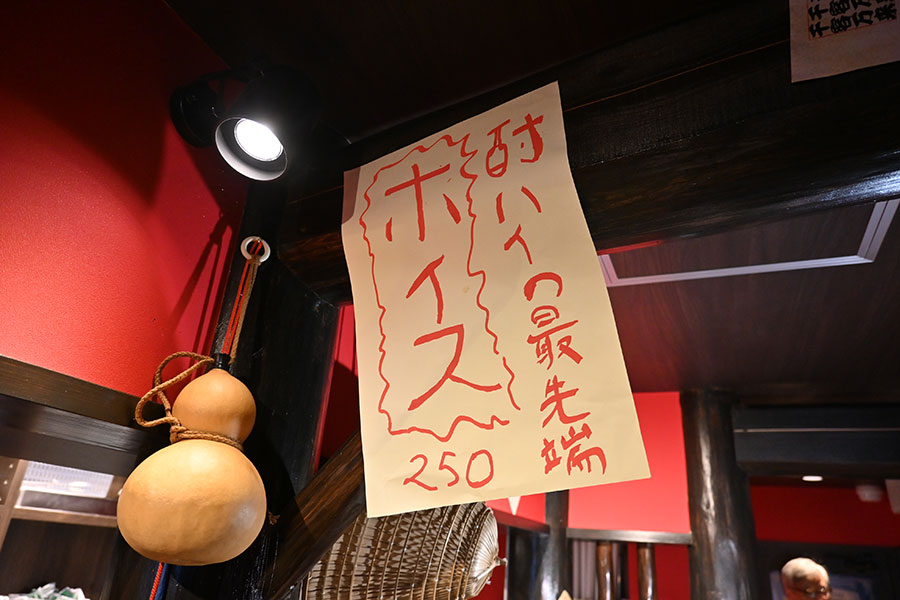 酎ハイの最先端
ホイス
250